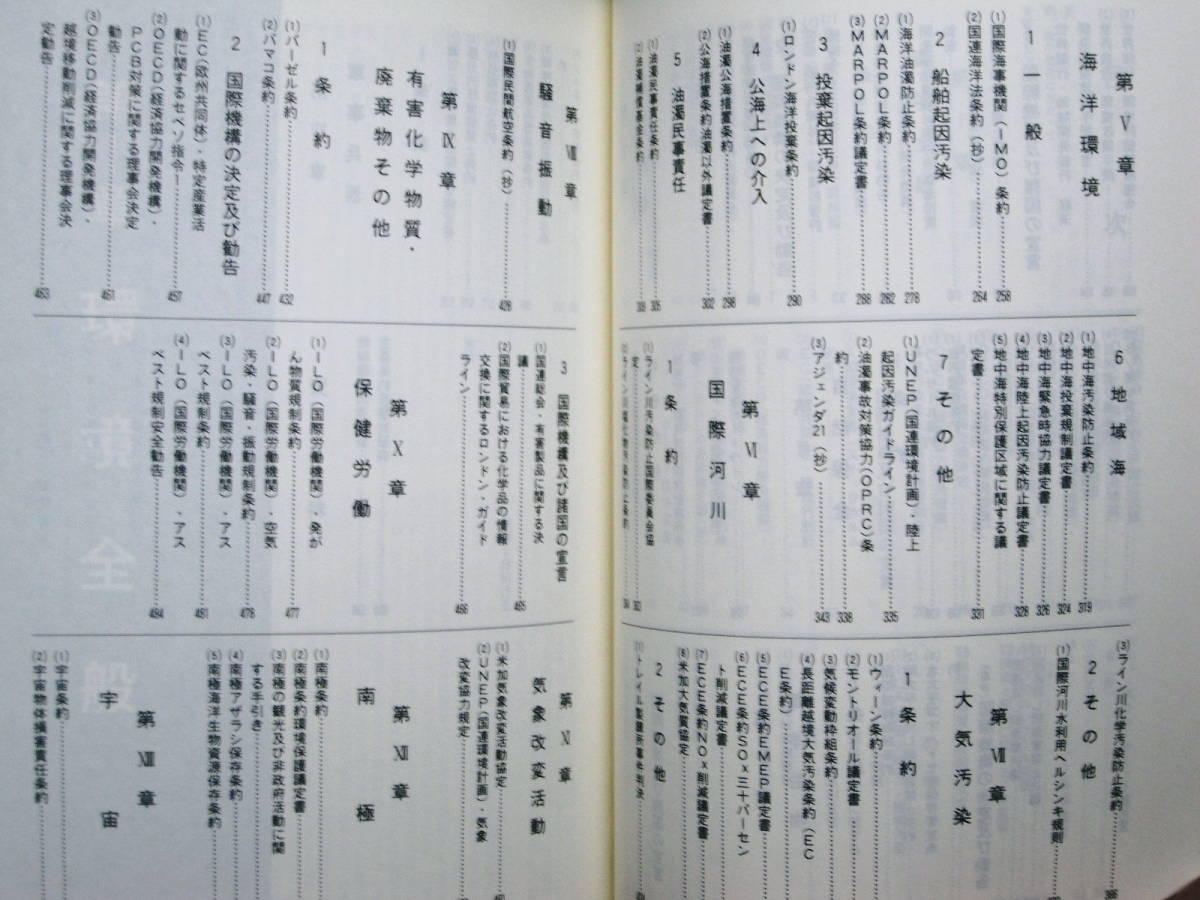 第Ⅴ章
海洋環境
1 一般
(1)国際海事機関(IMO)条約 258
(2)国連海洋法条約(抄) 264
2 船舶起因汚染
(1)海洋油濁防止条約 278
(2)MARPOL条約 282
(3)MARPOL条約議定書 288
3 投棄起因汚染
(1)ロンドン海洋投棄条約 290
4 公海上への介入
(1)油濁公海措置条約 298
(2)公海措置条約油濁以外議定書 302
5 油濁民事責任
(1)油濁民事責任条約 305
(2)油濁補償基金条約 309
6 地域海
(1)地中海汚染防止条約 319
(2)地中海投棄規制議定書 324
(3)地中海緊急時協力議定書 326
(4)地中海陸上起因汚染防止議定書 328
(5)地中海特別保護区域に関する議
定書 331
7 その他
(1)UNEP(国連環境計画)・陸上
起因汚染ガイドライン 335
(2)油濁事故対策協力(OPRC)条
約 338
(3)アジェンダ21(抄) 343
第Ⅵ章
国際河川
1 条約
(1)ライン川汚染防止国際委員会協
定 363
(2)ライン川塩化物汚染防止条約
(3)ライン川化学汚染防止条約
2 その他
(1)国際河川水利用ヘルシンキ規則
第Ⅶ章
大気汚染
1 条約
(1)ウィーン条約
(2)モントリオール議定書
(3)気候変動枠組条約
(4)長距離越境大気汚染条約(EC
E条約)
(5)ECE条約EMEP議定書
(6)ECE条約SOx三十パーセン
ト削減議定書
(7)ECE条約NOx削減議定書
(8)米加大気質協定
2 その他
(1)トレイル製錬所事件判決
第Ⅷ章
騒音振動
(1)国際民間航空条約(抄) 428
第Ⅸ章
有害化学物質・
廃棄物その他
1 条約
(1)バーゼル条約 432
(2)バマコ条約 447
2 国際機構の決定及び勧告
(1)EC(欧州共同体)・特定産業活
動に関するセベソ指令Ⅰ 457
(2)OECD(経済協力開発機構)・
PCB対策に関する理事会決定
勧告 461
(3)OECD(経済協力開発機構)・
越境移動削減に関する理事会決
定勧告 463
3 国際機構及び諸国の宣言
(1)国連総会・有害製品に関する決
議 465
(2)国際貿易における化学品の情報
交換に関するロンドン・ガイド
ライン 466
第Ⅹ章
保健労働
(1)ILO(国際労働機関)・発が
ん物質規制条約 477
(2)ILO(国際労働機関)・空気
汚染・騒音・振動規制条約 478
(3)ILO(国際労働機関)・アス
ベスト規制条約 481
(4)ILO(国際労働機関)・アス
ベスト規制安全勧告 484
第Ⅺ章
気象改変活動
(1)米加気象改変活動協定
(2)UNEP(国連環境計画)・気象
改変協力規定
第Ⅻ章
南極
(1)南極条約
(2)南極条約環境保護議定書
(3)南極の観光及び非政府活動に関
する手引き
(4)南極アザラシ保存条約
(5)南極海洋生物資源保存条約
第XIII章
宇宙
(1)宇宙条約
(2)宇宙物体損害責任条約